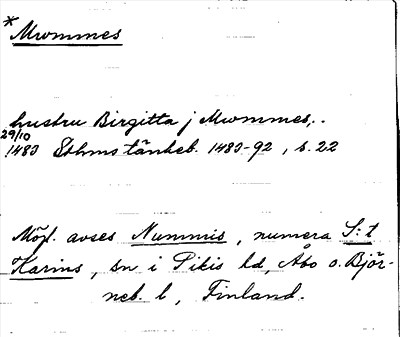 *Mwommes
hustru Birgitta j Mwommes,.
29/10
1483 Sthms tänkeb. 1483-92, s. 22
Möjl. avses Nummis, numera S:t
Karins, sn i Pikis hd, Åbo o. Björ-
neb. l, Finland.